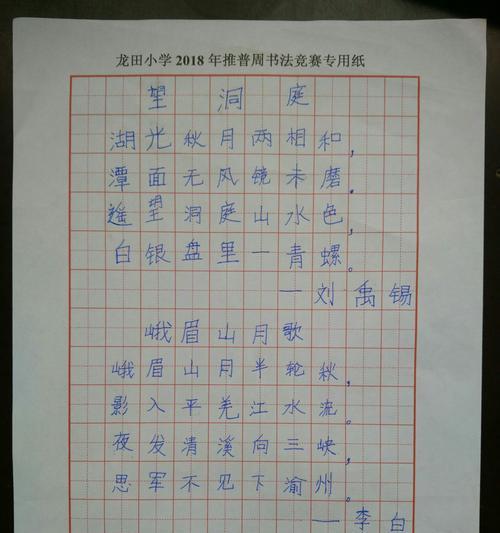 龙田小学2018年推普周书法竞赛专用纸
望洞庭
湖光秋月两相和，
潭面无风镜未磨。
遥望洞庭山水色，
白银盘里一青螺。
—刘禹锡
峨眉山月歌
峨眉山月半轮秋，
影入平羌江水流。
夜发清溪向三峡，
思军不见下渝州。
—李白